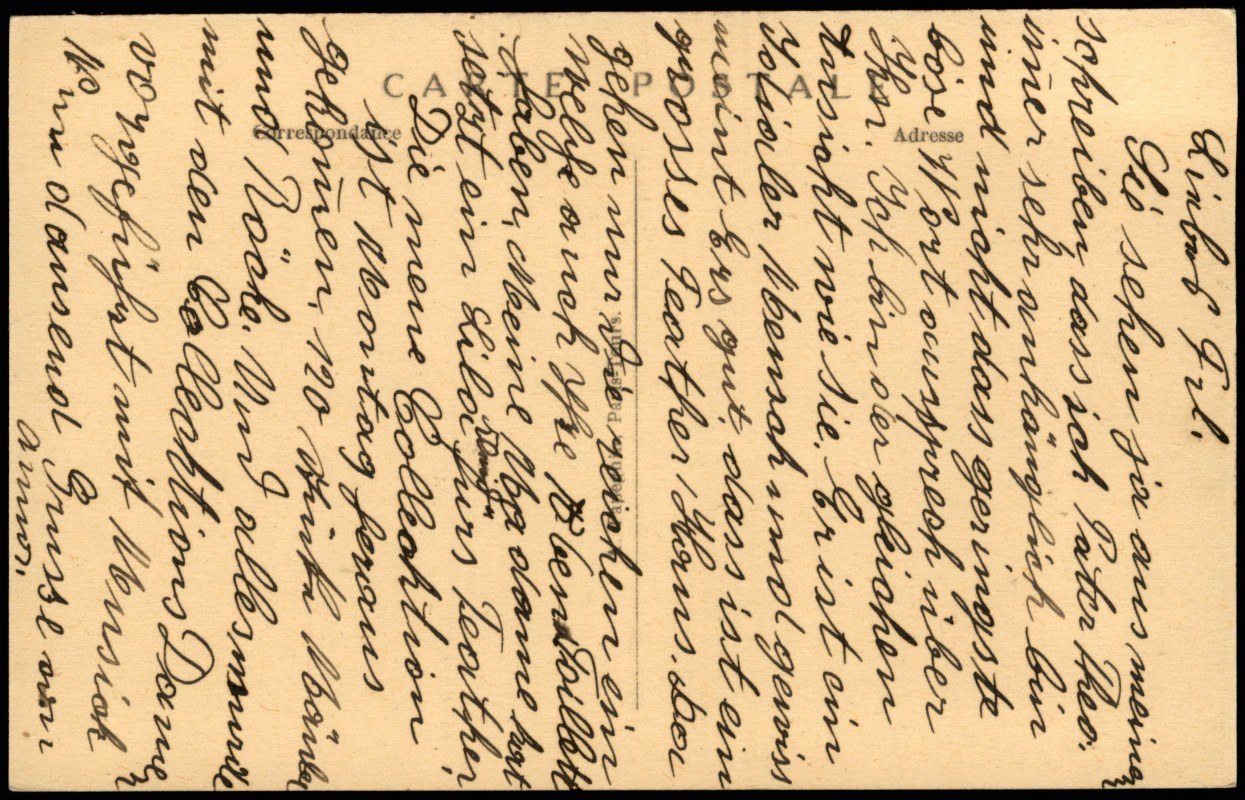 CARTE POSTALE
Correspondance
Adresse
Liebes Frl.
Sie sehen ja aus meinen
schreiben, dass ich Pater Theo.
im̅er sehr anhänglich bin
und nicht das geringste
böse Wort aussprech über
Ihr. Ich bin der gleichen
Ansicht wie Sie. Er ist ein
Edler Mensch und gewiss
meint Ers gut. das ist ein
grosses Teather Haus. da
gehen nur die reichen ein
welche auch Ihre Abend Toilette
haben, Meine Madame hat
jetzt ein Lila Samt furs Teather.
Die neue Collection
ist Montag heraus
gekom̅en. 120 Mäntel
und Röcke. Und alles wurde
mit den Collections Damen
vorgeführt mit Musick
Nun dausend Grüsse von
Anna.